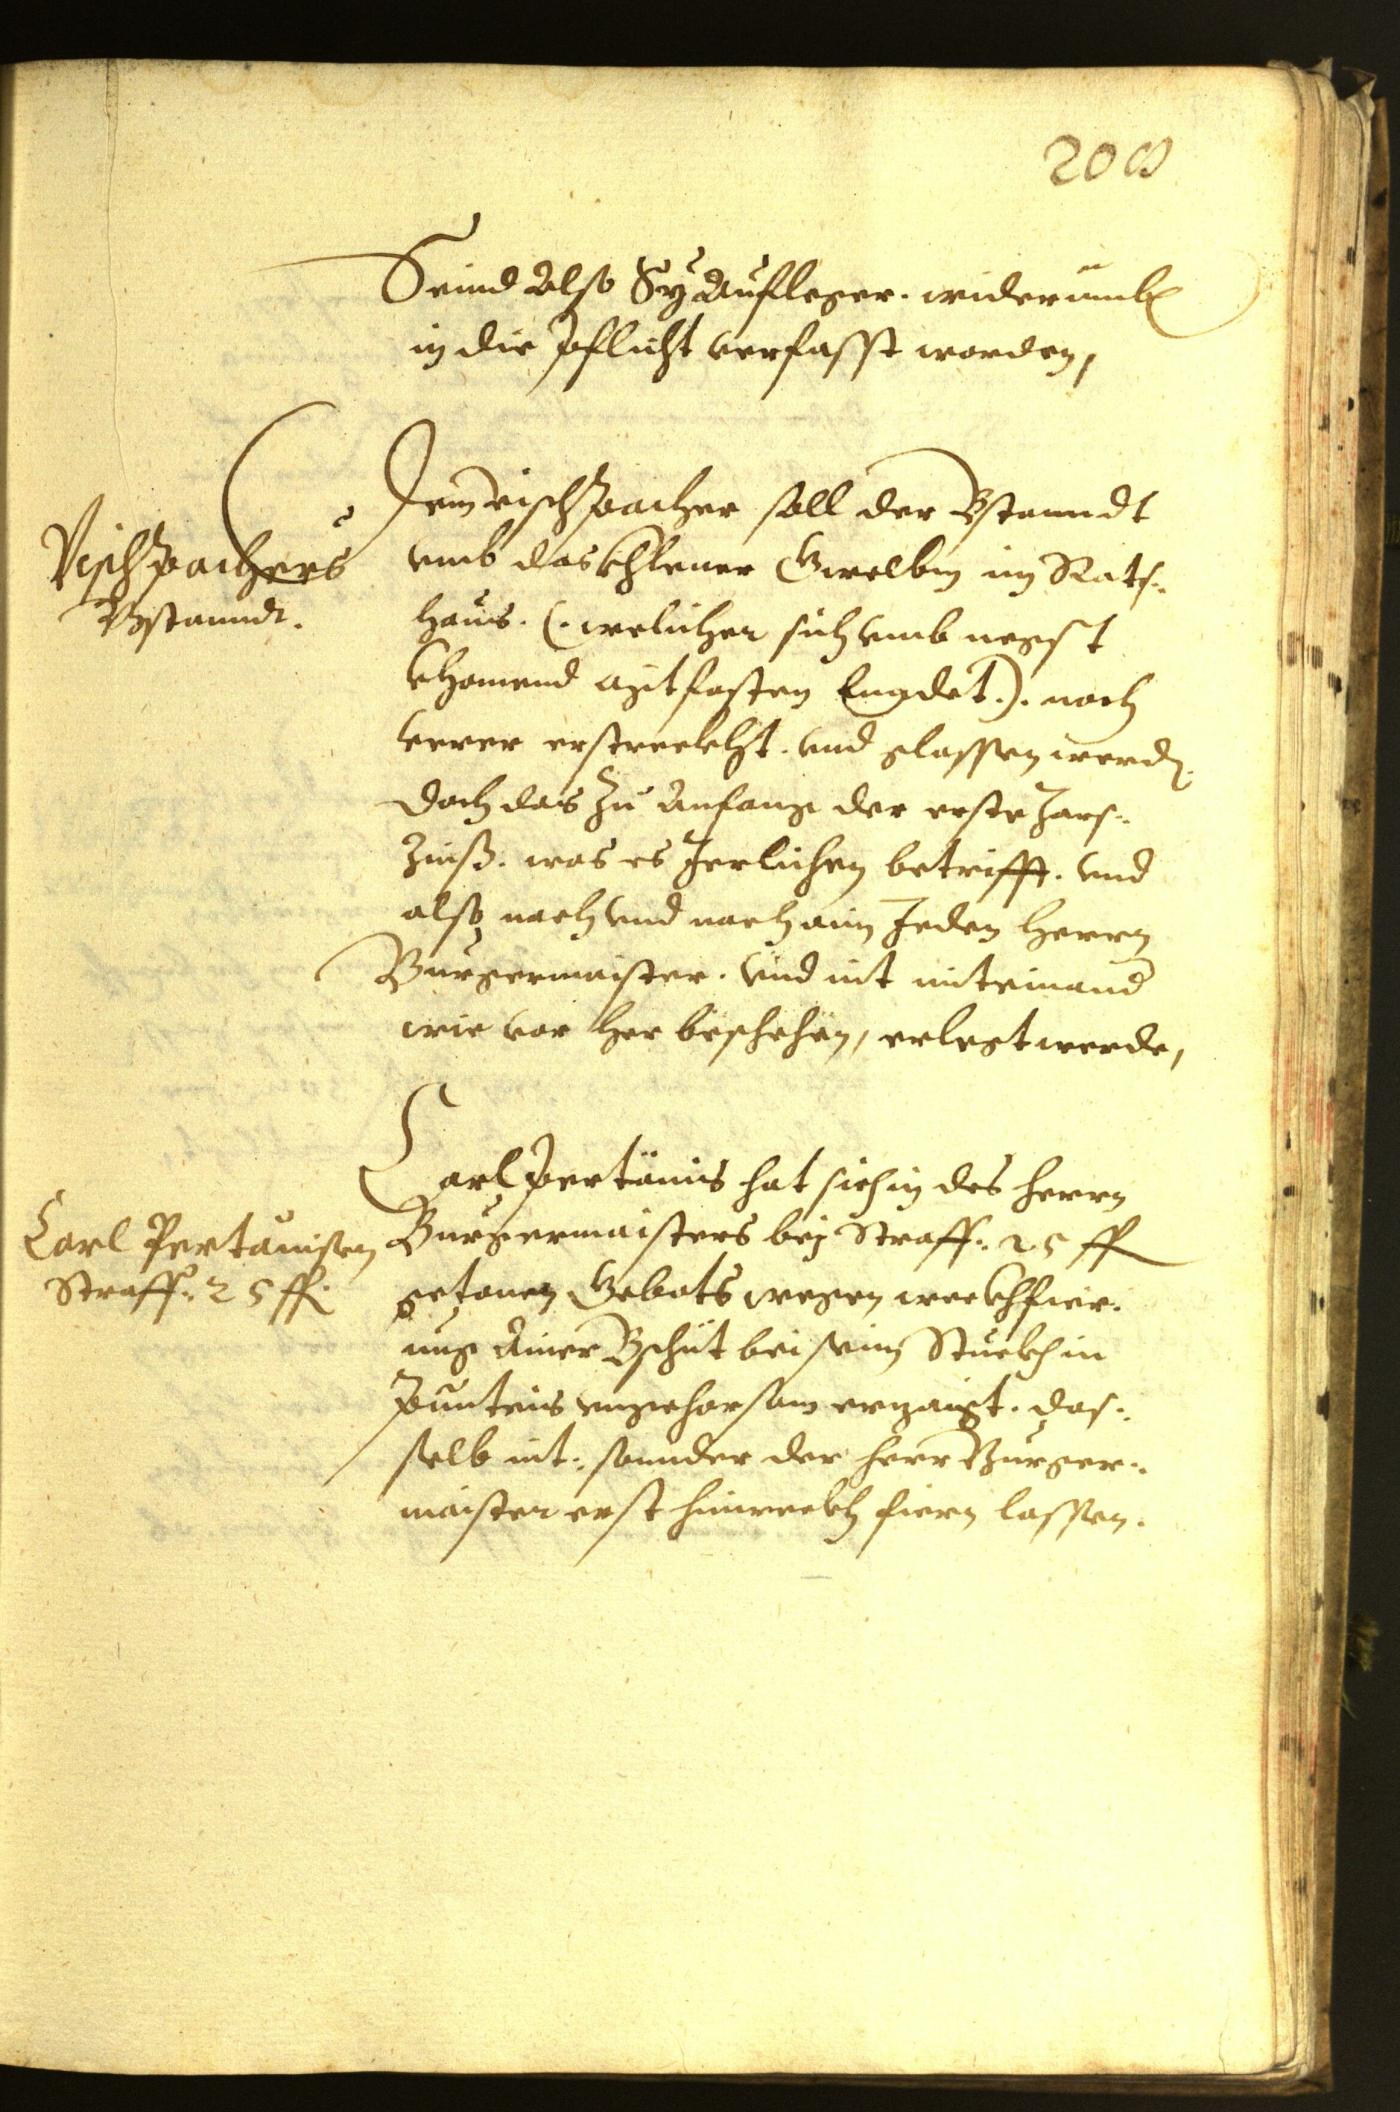 208
Seind Also Sÿ Aufleger. widerumb
in die Pflicht verfasst worden,
Vischpachers
Bstanndt.
Dem vischpacher soll der Bstanndt
umb das khlener Gwelbm im Rats-
haus. (. welicher sich umb negst
khomend mitfasten Enndet.). noch
verer erstreekht. und glassen werdn.
doch das zu Anfang der erste Jars-
Zinß. was es Jerlichen betrifft. und
also nach und nach aim Jeden Herrn
Burgermaister. und nit miteinand
wie vor her beschehen, erlegt werde,
Carl Pertänisen
Straff: 25 ff.
Carl Pertänis hat sich in des herrn
Burgermaisters bej Straff: 25 ff
getonen Gebots wegen weekhfier-
ung Ainer Bschüt bei seim Stuckh in
Runtevis ungehorsam erzaigt. das-
selb nit: sonnder der herr Burger-
maister erst hinweekh fiern lassen.